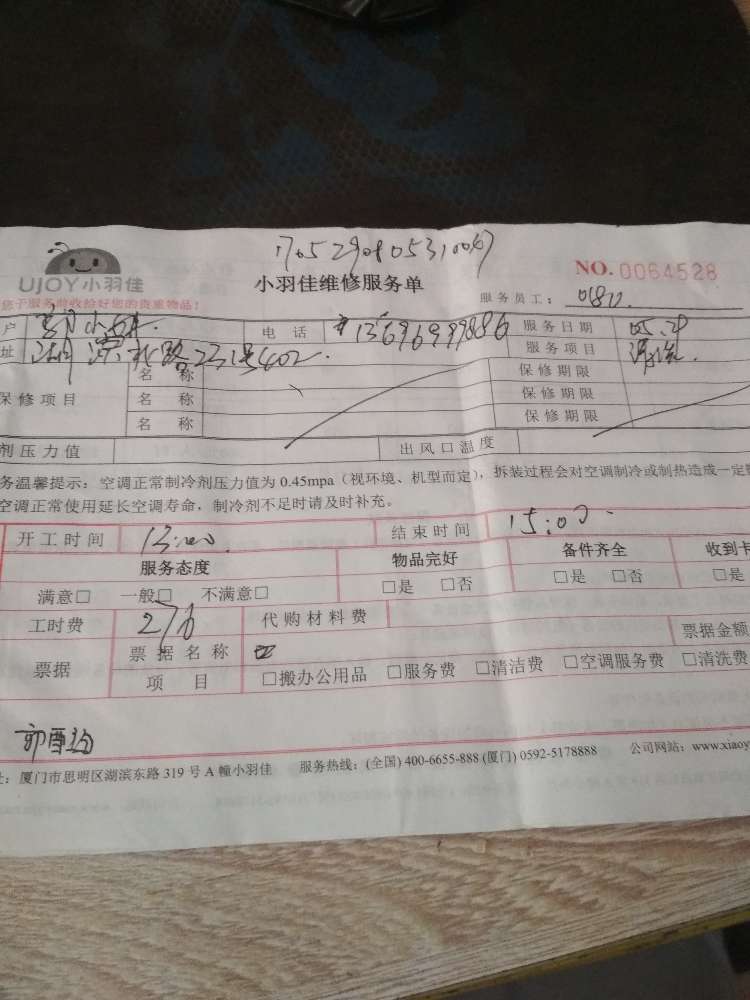 1705290805310067
UJOY小羽佳
小羽佳维修服务单
NO.0064528
您于服务前收拾好您的贵重物品！
服务员工：
户 小 电话 13696999886 服务日期 05.29
址 23号402 服务项目
保修项目 名称 保修期限
名称 保修期限
名称 保修期限
剂压力值 出风口温度
务温馨提示：空调正常制冷剂压力值为 0.45mpa（视环境、机型而定），拆装过程会对空调制冷或制热造成一定
空调正常使用延长空调寿命，制冷剂不足时请及时补充。
开工时间 13:00 结束时间 15:00
服务态度 物品完好 备件齐全 收到卡
满意□ 一般□ 不满意□ □是 □否 □是 □否 □是
工时费 276 代购材料费
票据 票据名称 票据金额
项目 □搬办公用品 □服务费 □清洁费 □空调服务费 □清洗费
址：厦门市思明区湖滨东路 319 号 A 幢小羽佳 服务热线：(全国) 400-6655-888 (厦门) 0592-5178888 公司网站：www.xiaoy